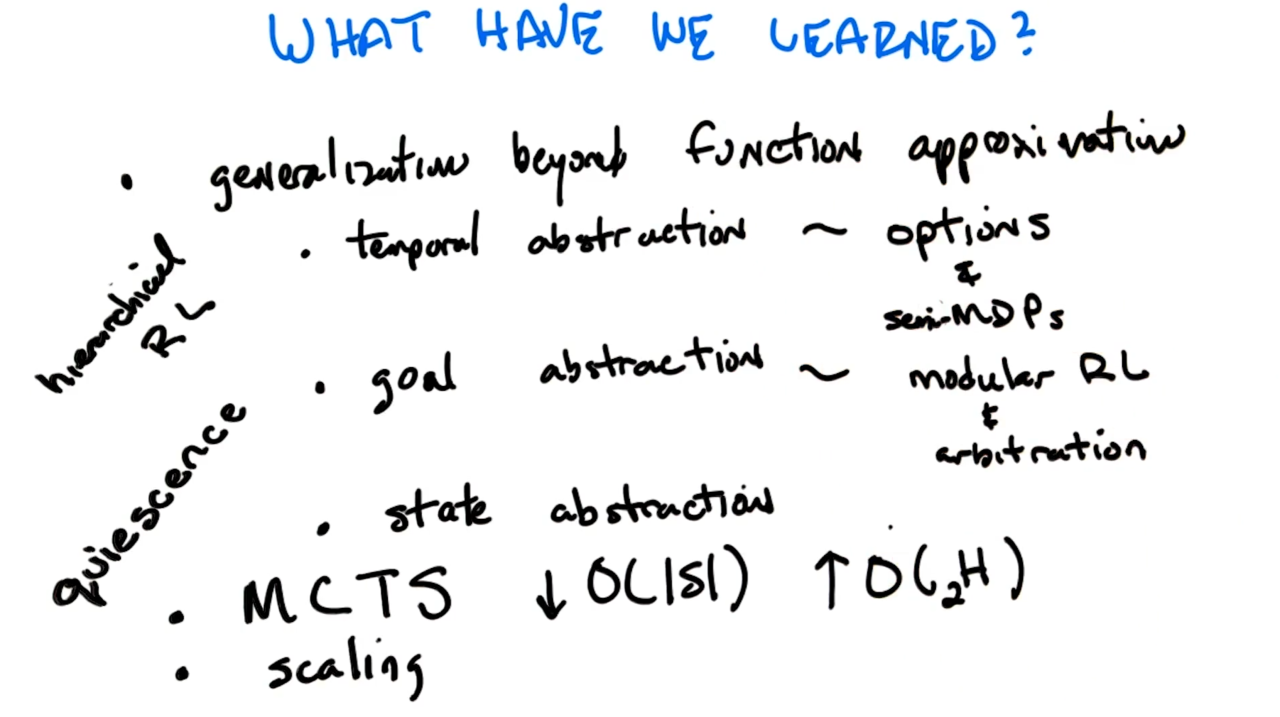 WHAT HAVE WE LEARNED?
• generalization beyond function approximation
• temporal abstraction ~ options
&
semi-MDPs
hierarchical
RL
• goal abstraction ~ modular RL
&
arbitration
quiescence
• state abstraction
• MCTS ↓ O(|S|) ↑ O(₂H)
• scaling